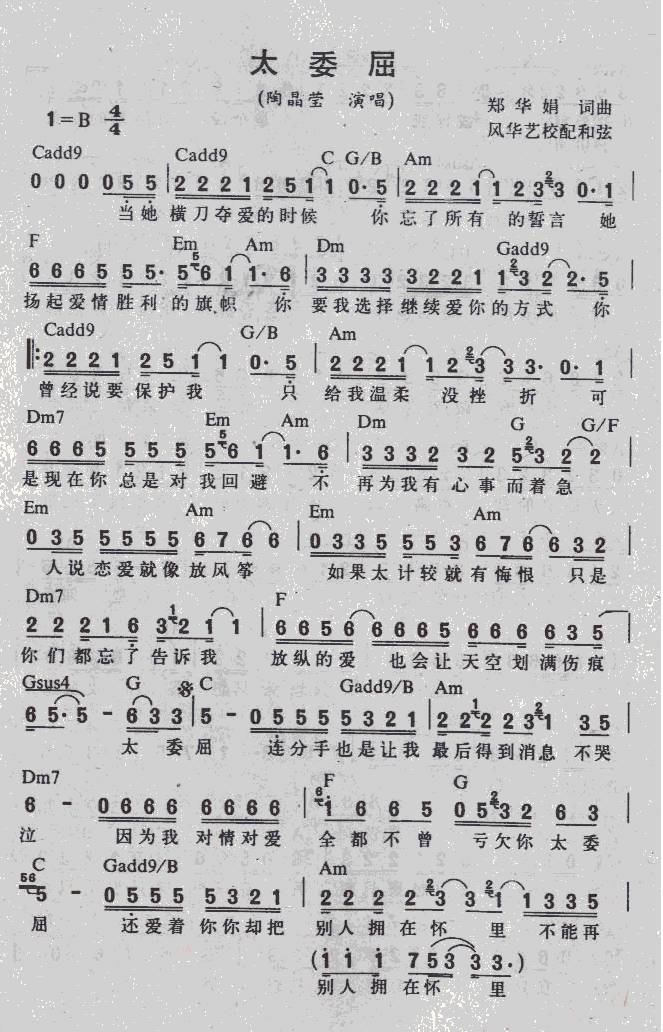 太委屈
(陶晶莹 演唱)
郑华娟 词曲
1=B 4/4
风华艺校配和弦
Cadd9 Cadd9 C G/B Am
0 0 0 0 5 5 | 2 2 2 1 2 5 1 1 1 0· 5 | 2 2 2 1 1 2 3 2 3 0· 1 |
当她 横刀夺爱的时候 你 忘了所有 的誓言 她
F Em Am Dm Gadd9
6 6 6 5 5 5 5· 5 5 6 1 1· 6 | 3 3 3 3 3 2 2 1 1 2 3 2 2· 5 |
扬起爱情胜利的旗帜 你 要我选择继续爱你的方式 你
Cadd9 G/B Am
‖: 2 2 2 1 2 5 1 1 0· 5 | 2 2 2 1 1 2 2 3 3 3· 0· 1 |
曾经说要保护我 只 给我温柔 没挫折 可
Dm7 Em Am Dm G G/F
6 6 6 5 5 5 5 5 5 6 1 1· 6 | 3 3 3 2 3 2 5 2 3 2 2 |
是现在你总是对我回避 不 再为我有心事而着急
Em Am Em Am
0 3 5 5 5 5 5 6 7 6 6 | 0 3 3 5 5 5 3 6 7 6 6 3 2 |
人说恋爱就像放风筝 如果太计较就有悔恨 只是
Dm7 F
2 2 2 1 6 3 1 2 1 1 | 6 6 5 6 6 6 6 5 6 6 6 6 3 5 |
你们都忘了告诉我 放纵的爱 也会让天空划满伤痕
Gsus4 G C Gadd9/B Am
6 5· 5 - 6 3 3 | 5 - 0 5 5 5 5 3 2 1 | 2 2 2 2 2 3 2 1 3 5 |
太委屈 连分手也是让我 最后得到消息 不哭
Dm7 F G
6 - 0 6 6 6 6 6 6 6 | 6 1 6 6 5 0 5 2 3 2 6 3 |
泣 因为我 对情对爱 全都不曾 亏欠你 太委
C Gadd9/B Am
56 5 - 0 5 5 5 5 3 2 1 | 2 2 2 2 3 3 2 1 1 3 3 5 |
屈 还爱着你你却把 别人拥在怀里 不能再
(1 1 1 7 5 3 3 3·)
别人拥在怀里